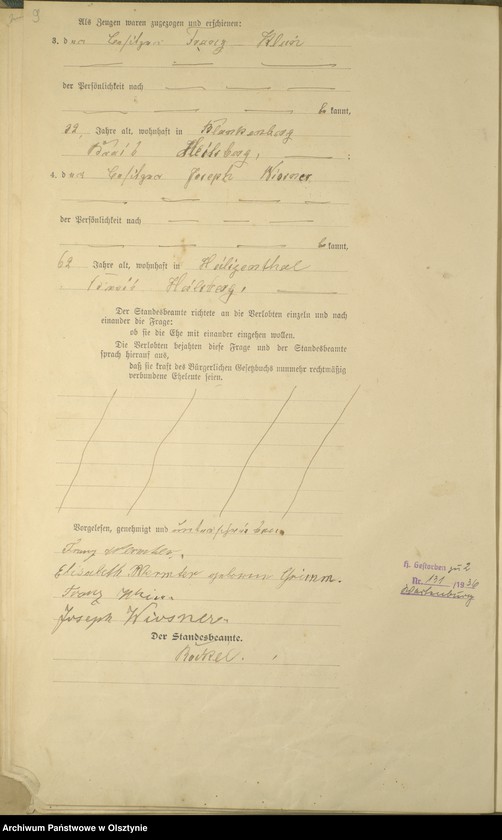 9
Als Zeugen waren zugezogen und erschienen:
3. der Besitzer Franz Klein
der Persönlichkeit nach
be kannt,
22 Jahre alt, wohnhaft in Blankenberg
Kreis Heilsberg, ;
4. der Besitzer Joseph
der Persönlichkeit nach
be kannt,
62 Jahre alt, wohnhaft in Heiligenthal
Kreis Heilsberg.
Der Standesbeamte richtete an die Verlobten einzeln und nach
einander die Frage:
ob sie die Ehe mit einander eingehen wollen.
Die Verlobten bejahten diese Frage und der Standesbeamte
sprach hierauf aus,
daß sie kraft des Bürgerlichen Gesetzbuchs nunmehr rechtmäßig
verbundene Eheleute seien.
Vorgelesen, genehmigt und unterschrieben
Franz
Elisabeth geborene Grimm.
Franz Klein
Joseph
Der Standesbeamte.
H. Gestorben zu 2
Nr. 131 /1936
Wartenburg
Archiwum Państwowe w Olsztynie